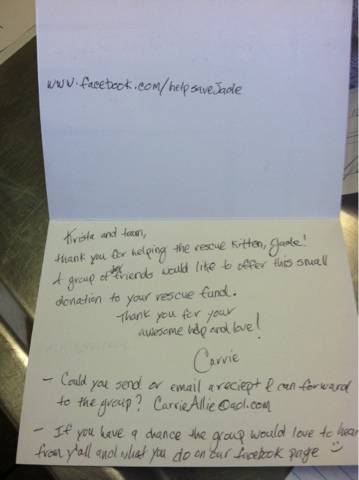 www.facebook.com/helpsaveJade
Krista and team,
thank you for helping the rescue kitten, Jade!
A group of her friends would like to offer this small
donation to your rescue fund.
Thank you for your
awesome help and love!
Carrie
- Could you send or email a reciept I can forward
to the group? CarrieAllie@aol.com
- If you have a chance the group would love to hear
from y'all and what you do on our facebook page